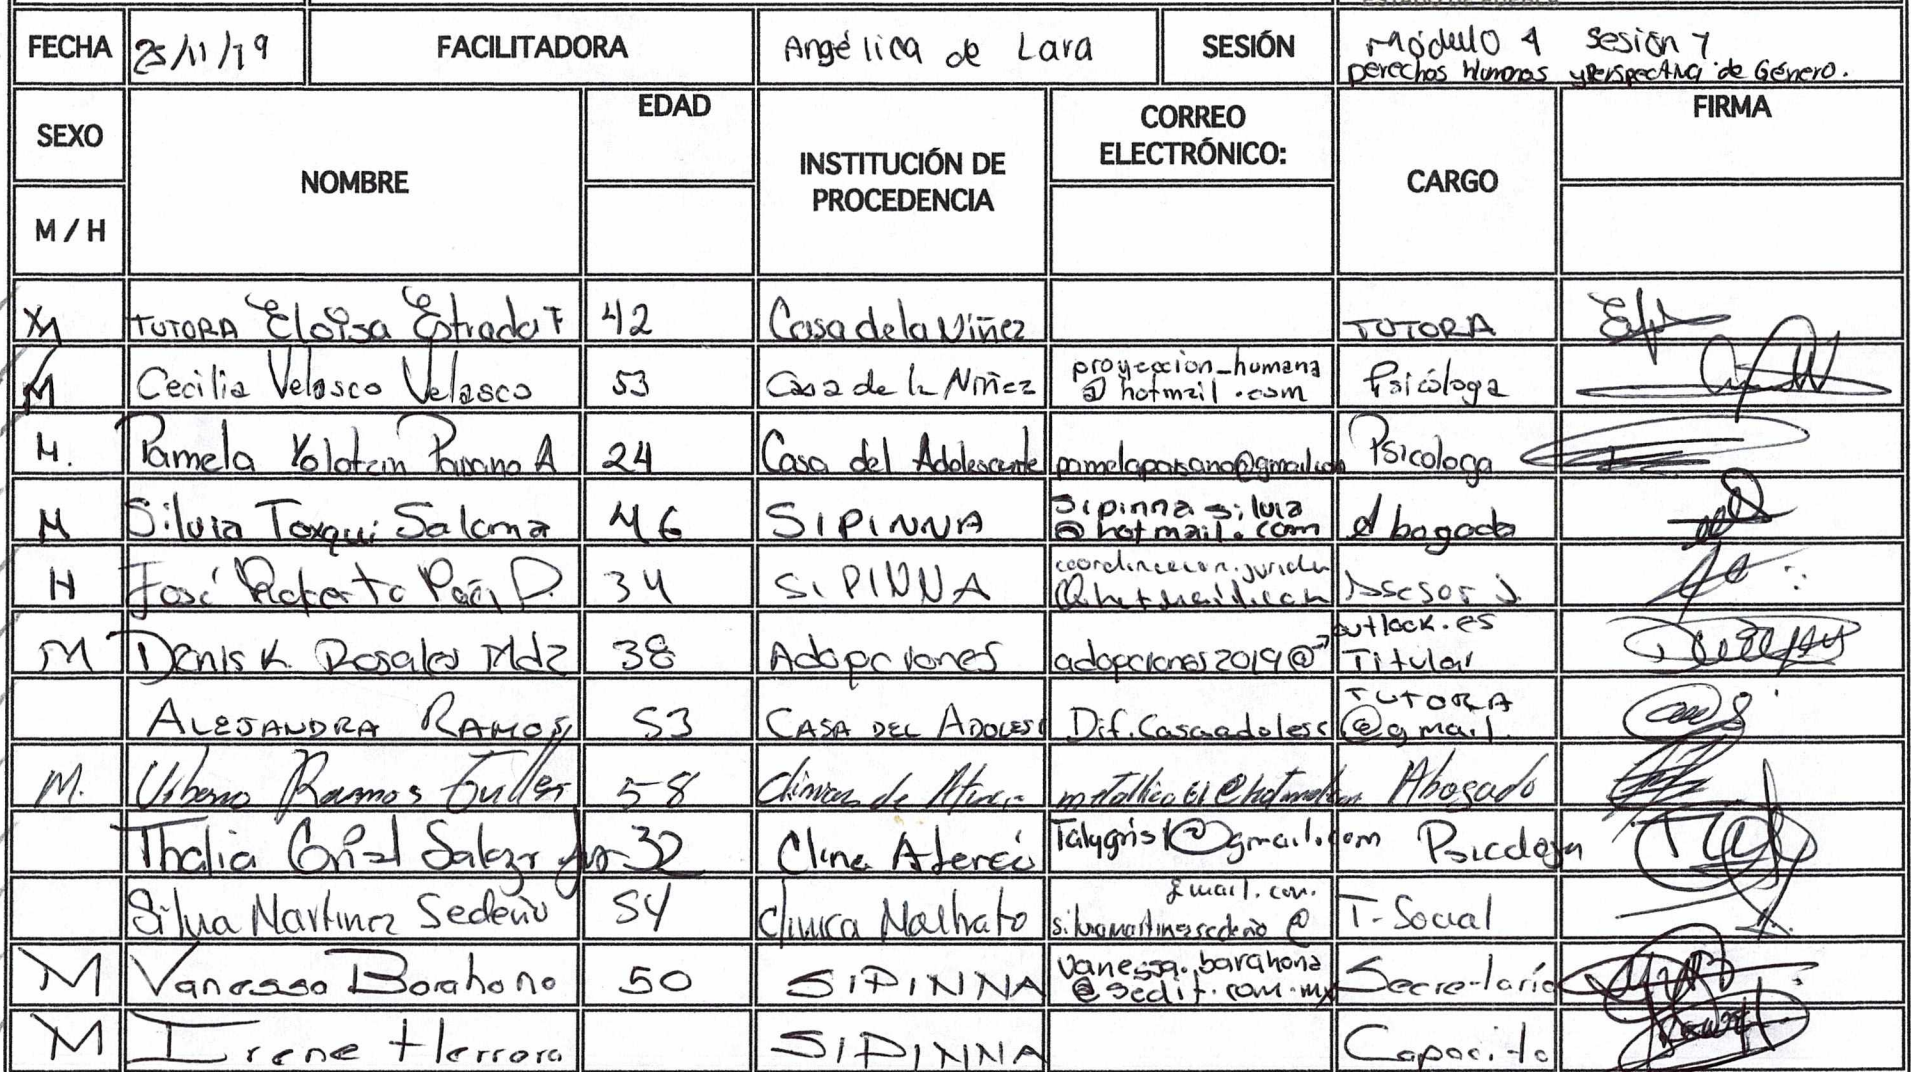 FECHA 25/11/19 FACILITADORA Angélica de Lara SESIÓN Módulo 4 Sesión 7
Derechos Humanos y Perspectiva de Género.
SEXO
M / H
NOMBRE
EDAD
INSTITUCIÓN DE
PROCEDENCIA
CORREO
ELECTRÓNICO:
CARGO
FIRMA
M TUTORA Eloisa Estrada F 42 Casa de la Niñez TUTORA
M Cecilia Velasco Velasco 53 Casa de la Niñez proyeccion_humana
@hotmail.com Psicóloga
M. Pamela 24 Casa del Adolescente Psicologa
M Silvia Toxqui Salama 46 SIPINNA Sipinna silvia
@hotmail.com Abogada
H José Roberto 34 SIPINNA Asesor J.
M Denis K. Rosales Mdz 38 Adopciones adopciones2019@
outlook.es
Titular
ALEJANDRA RAMOS 53 CASA DEL ADOLESC Dif.Casaadolesc
@gmail.
TUTORA
M. Ramos 58 Abogado
Thalia Salazar 32 Talygris1@gmail.com Psicologa
Silvia Martinez Sedeño 54 Clinica Maltrato silviamartinezsedeño@
gmail.com. T-Social
M Vanessa Barahona 50 SIPINNA vanessa.barahona
@sedif.com.mx Secretaria
M Irene Herrera SIPINNA Capacita